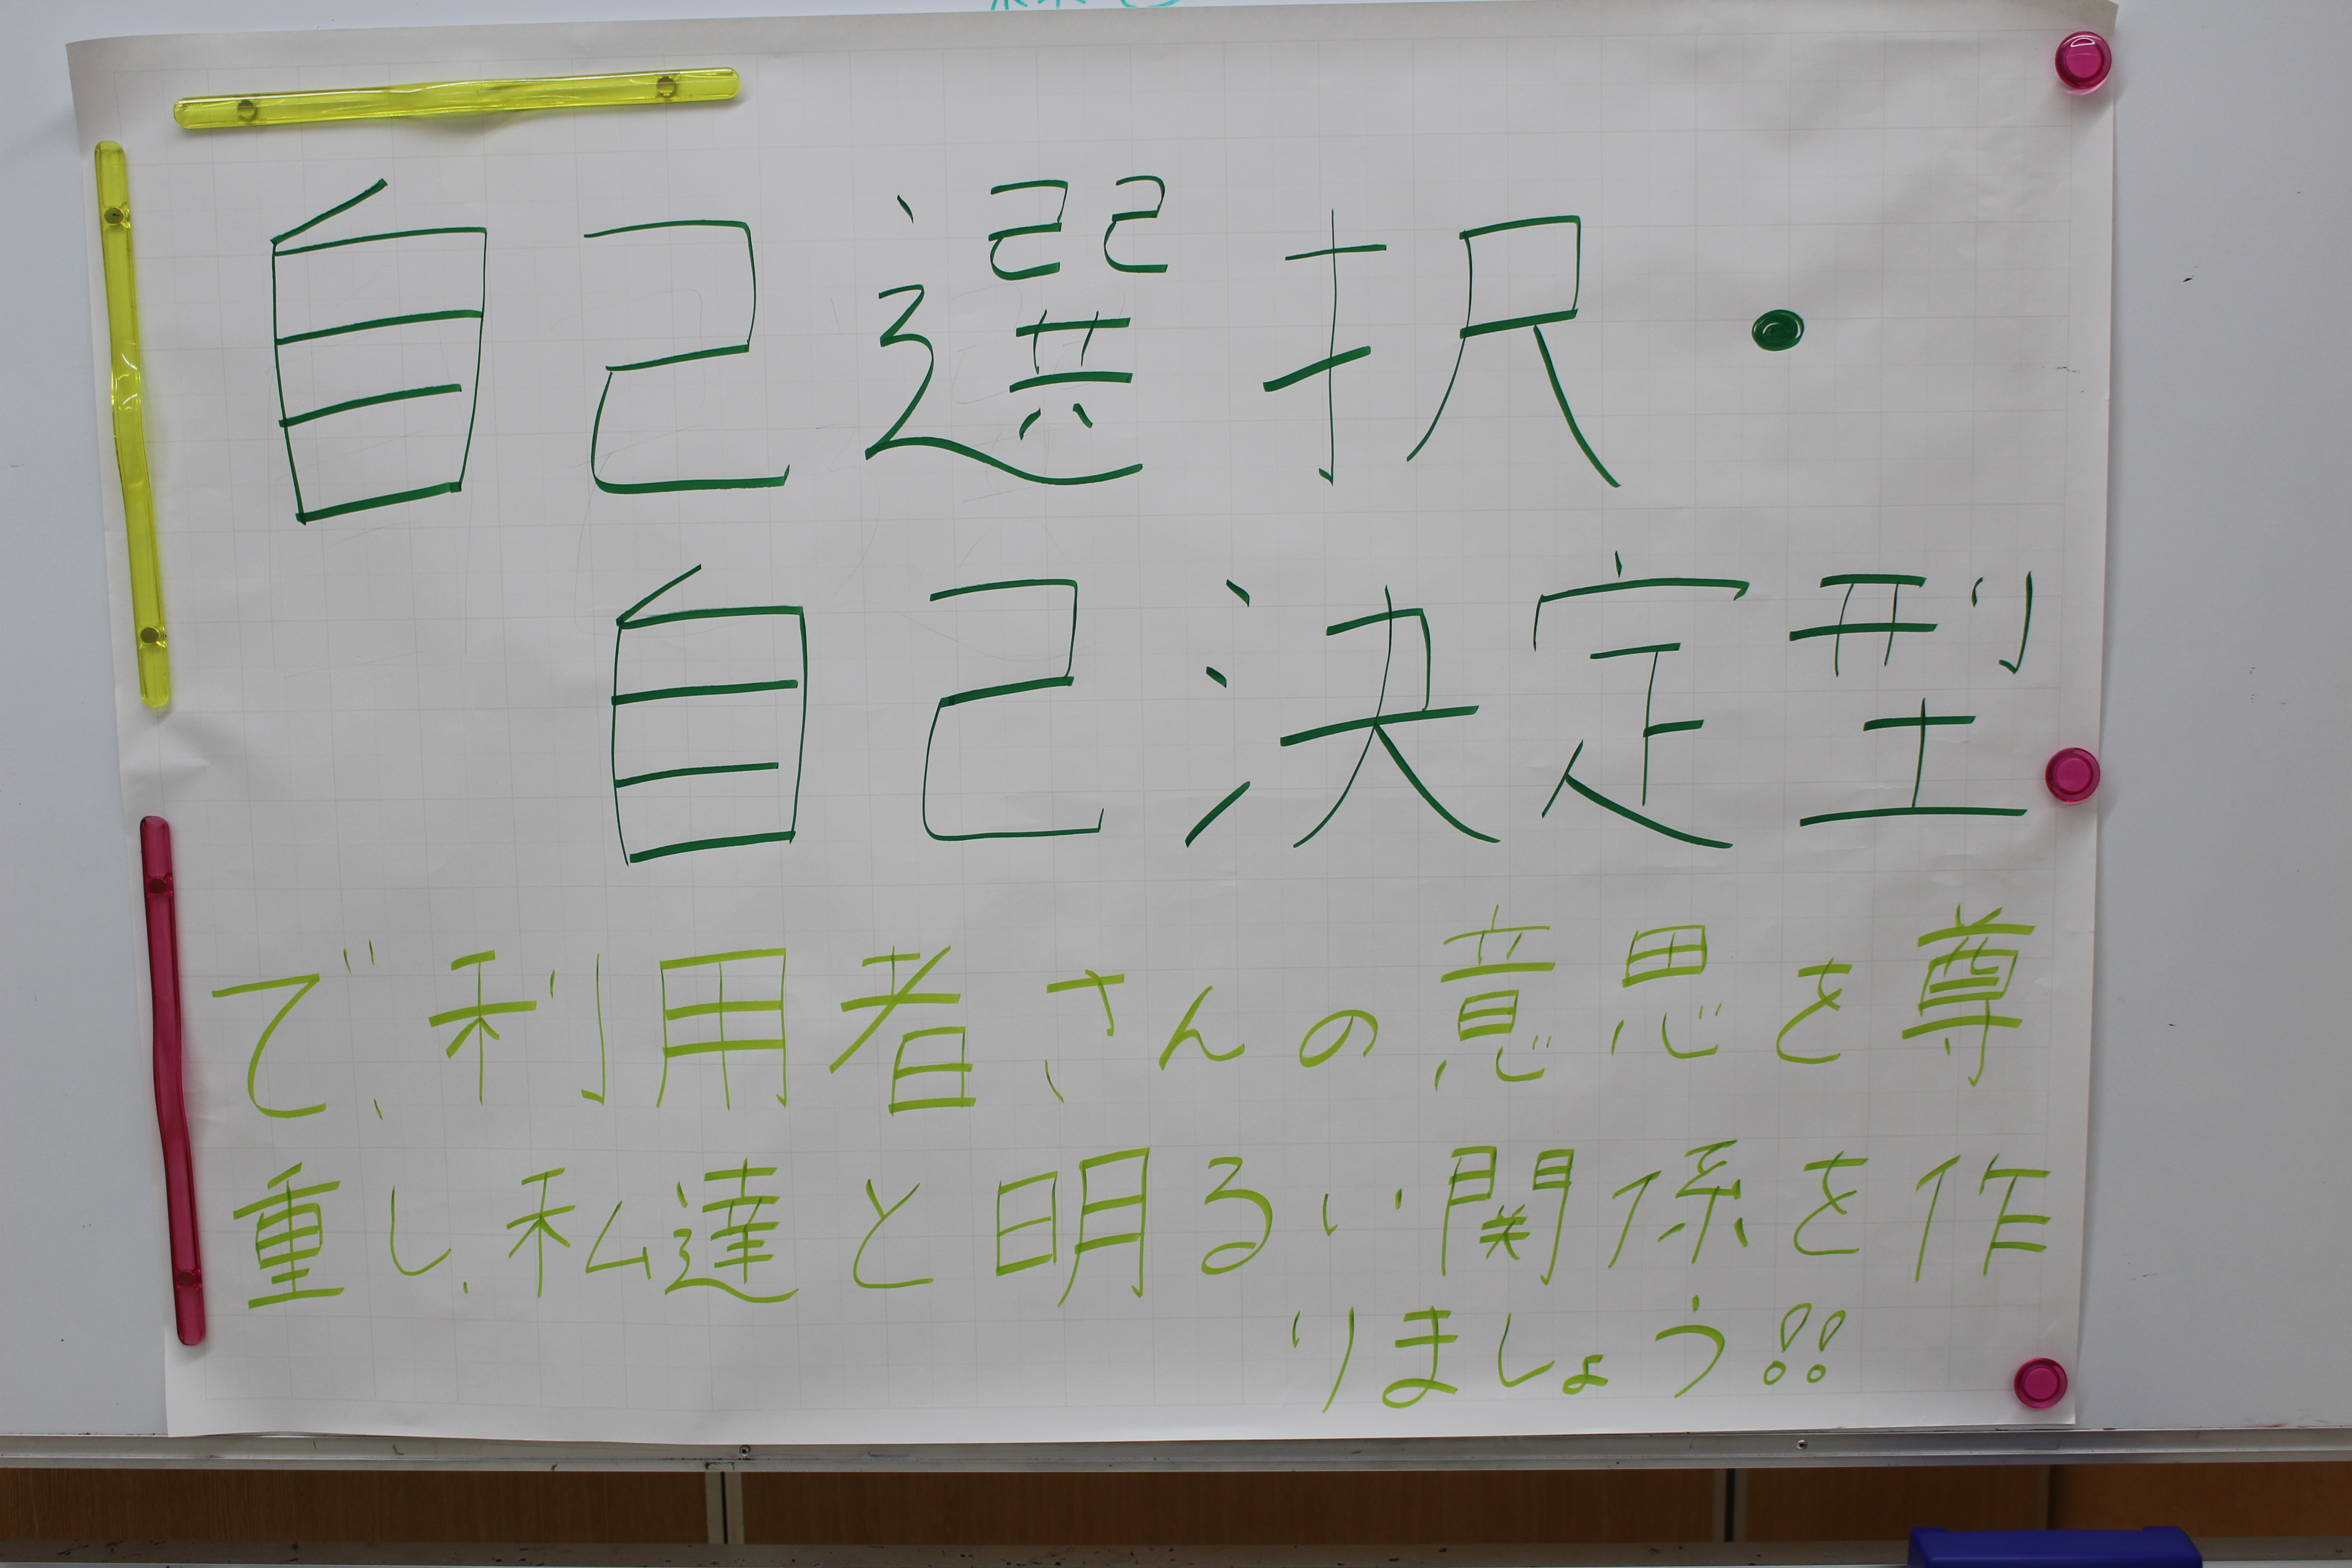 自己選択・
自己決定型
で、利用者さんの意思を尊
重し、私達と明るい関係を作
りましょう!!